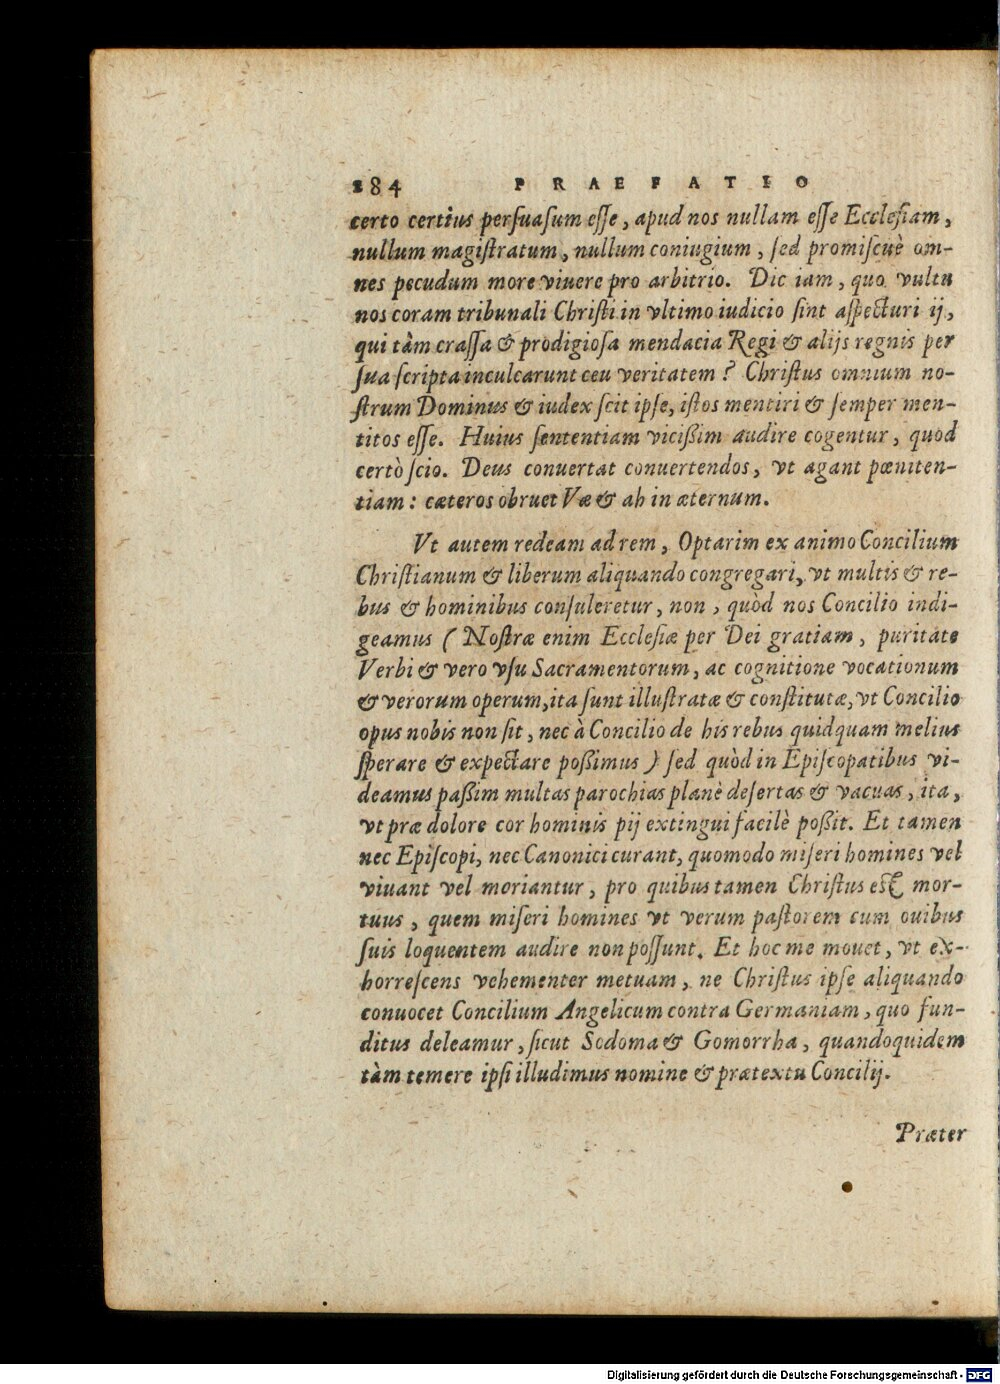 284 PRAEFATIO
certo certius persuasum esse, apud nos nullam esse Ecclesiam,
nullum magistratum, nullum coniugium, sed promiscuè om-
nes pecudum more viuere pro arbitrio. Dic iam, quo vultu
nos coram tribunali Christi in vltimo iudicio sint aspecturi ij,
qui tàm crassa & prodigiosa mendacia Regi & alijs regnis per
sua scripta inculcarunt ceu veritatem? Christus omnium no-
strum Dominus & iudex scit ipse, istos mentiri & semper men-
titos esse. Huius sententiam vicißim audire cogentur, quod
certò scio. Deus conuertat conuertendos, vt agant pœniten-
tiam: cæteros obruet Væ & ah in æternum.
Vt autem redeam ad rem, Optarim ex animo Concilium
Christianum & liberum aliquando congregari, vt multis & re-
bus & hominibus consuleretur, non, quòd nos Concilio indi-
geamus (Nostræ enim Ecclesiæ per Dei gratiam, puritate
Verbi & vero vsu Sacramentorum, ac cognitione vocationum
& verorum operum, ita sunt illustratæ & constitutæ, vt Concilio
opus nobis non sit, nec à Concilio de his rebus quidquam melius
sperare & expectare poßimus) sed quòd in Episcopatibus vi-
deamus paßim multas parochias planè desertas & vacuas, ita,
vt præ dolore cor hominis pij extingui facilè poßit. Et tamen
nec Episcopi, nec Canonici curant, quomodo miseri homines vel
viuant vel moriantur, pro quibus tamen Christus est mor-
tuus, quem miseri homines vt verum pastorem cum ouibus
suis loquentem audire non possunt. Et hoc me mouet, vt ex-
horrescens vehementer metuam, ne Christus ipse aliquando
conuocet Concilium Angelicum contra Germaniam, quo fun-
ditus deleamur, sicut Sodoma & Gomorrha, quandoquidem
tàm temere ipsi illudimus nomine & prætextu Concilij.
Præter
Digitalisierung gefördert durch die Deutsche Forschungsgemeinschaft - DFG